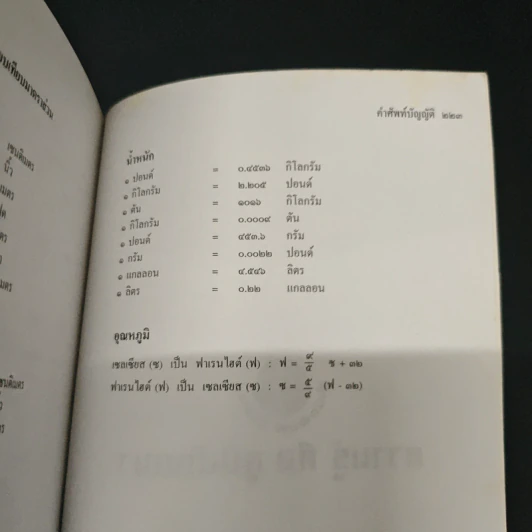 คำศัพท์บัญญัติ ๒๒๓
น้ำหนัก
๑ ปอนด์ = ๐.๔๕๓๖ กิโลกรัม
๑ กิโลกรัม = ๒.๒๐๕ ปอนด์
๑ ตัน = ๑๐๑๖ กิโลกรัม
๑ กิโลกรัม = ๐.๐๐๐๙ ตัน
๑ ปอนด์ = ๔๕๓.๖ กรัม
๑ กรัม = ๐.๐๐๒๒ ปอนด์
๑ แกลลอน = ๔.๕๔๖ ลิตร
๑ ลิตร = ๐.๒๒ แกลลอน
อุณหภูมิ
เซลเซียส (ซ) เป็น ฟาเรนไฮต์ (ฟ) : ฟ = ๙/๕ ซ + ๓๒
ฟาเรนไฮต์ (ฟ) เป็น เซลเซียส (ซ) : ซ = ๕/๙ (ฟ - ๓๒)